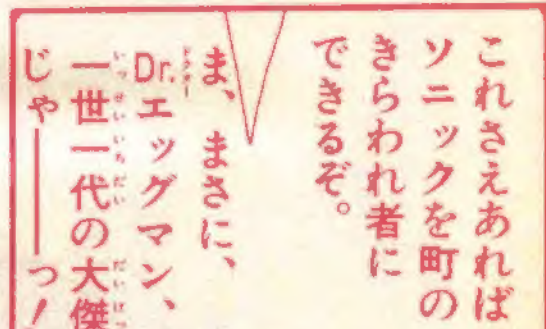 これさえあれば
ソニックを町の
きらわれ者に
できるぞ。
ま、まさに、
Dr.エッグマン、
一世一代の大傑
じゃ――っ!